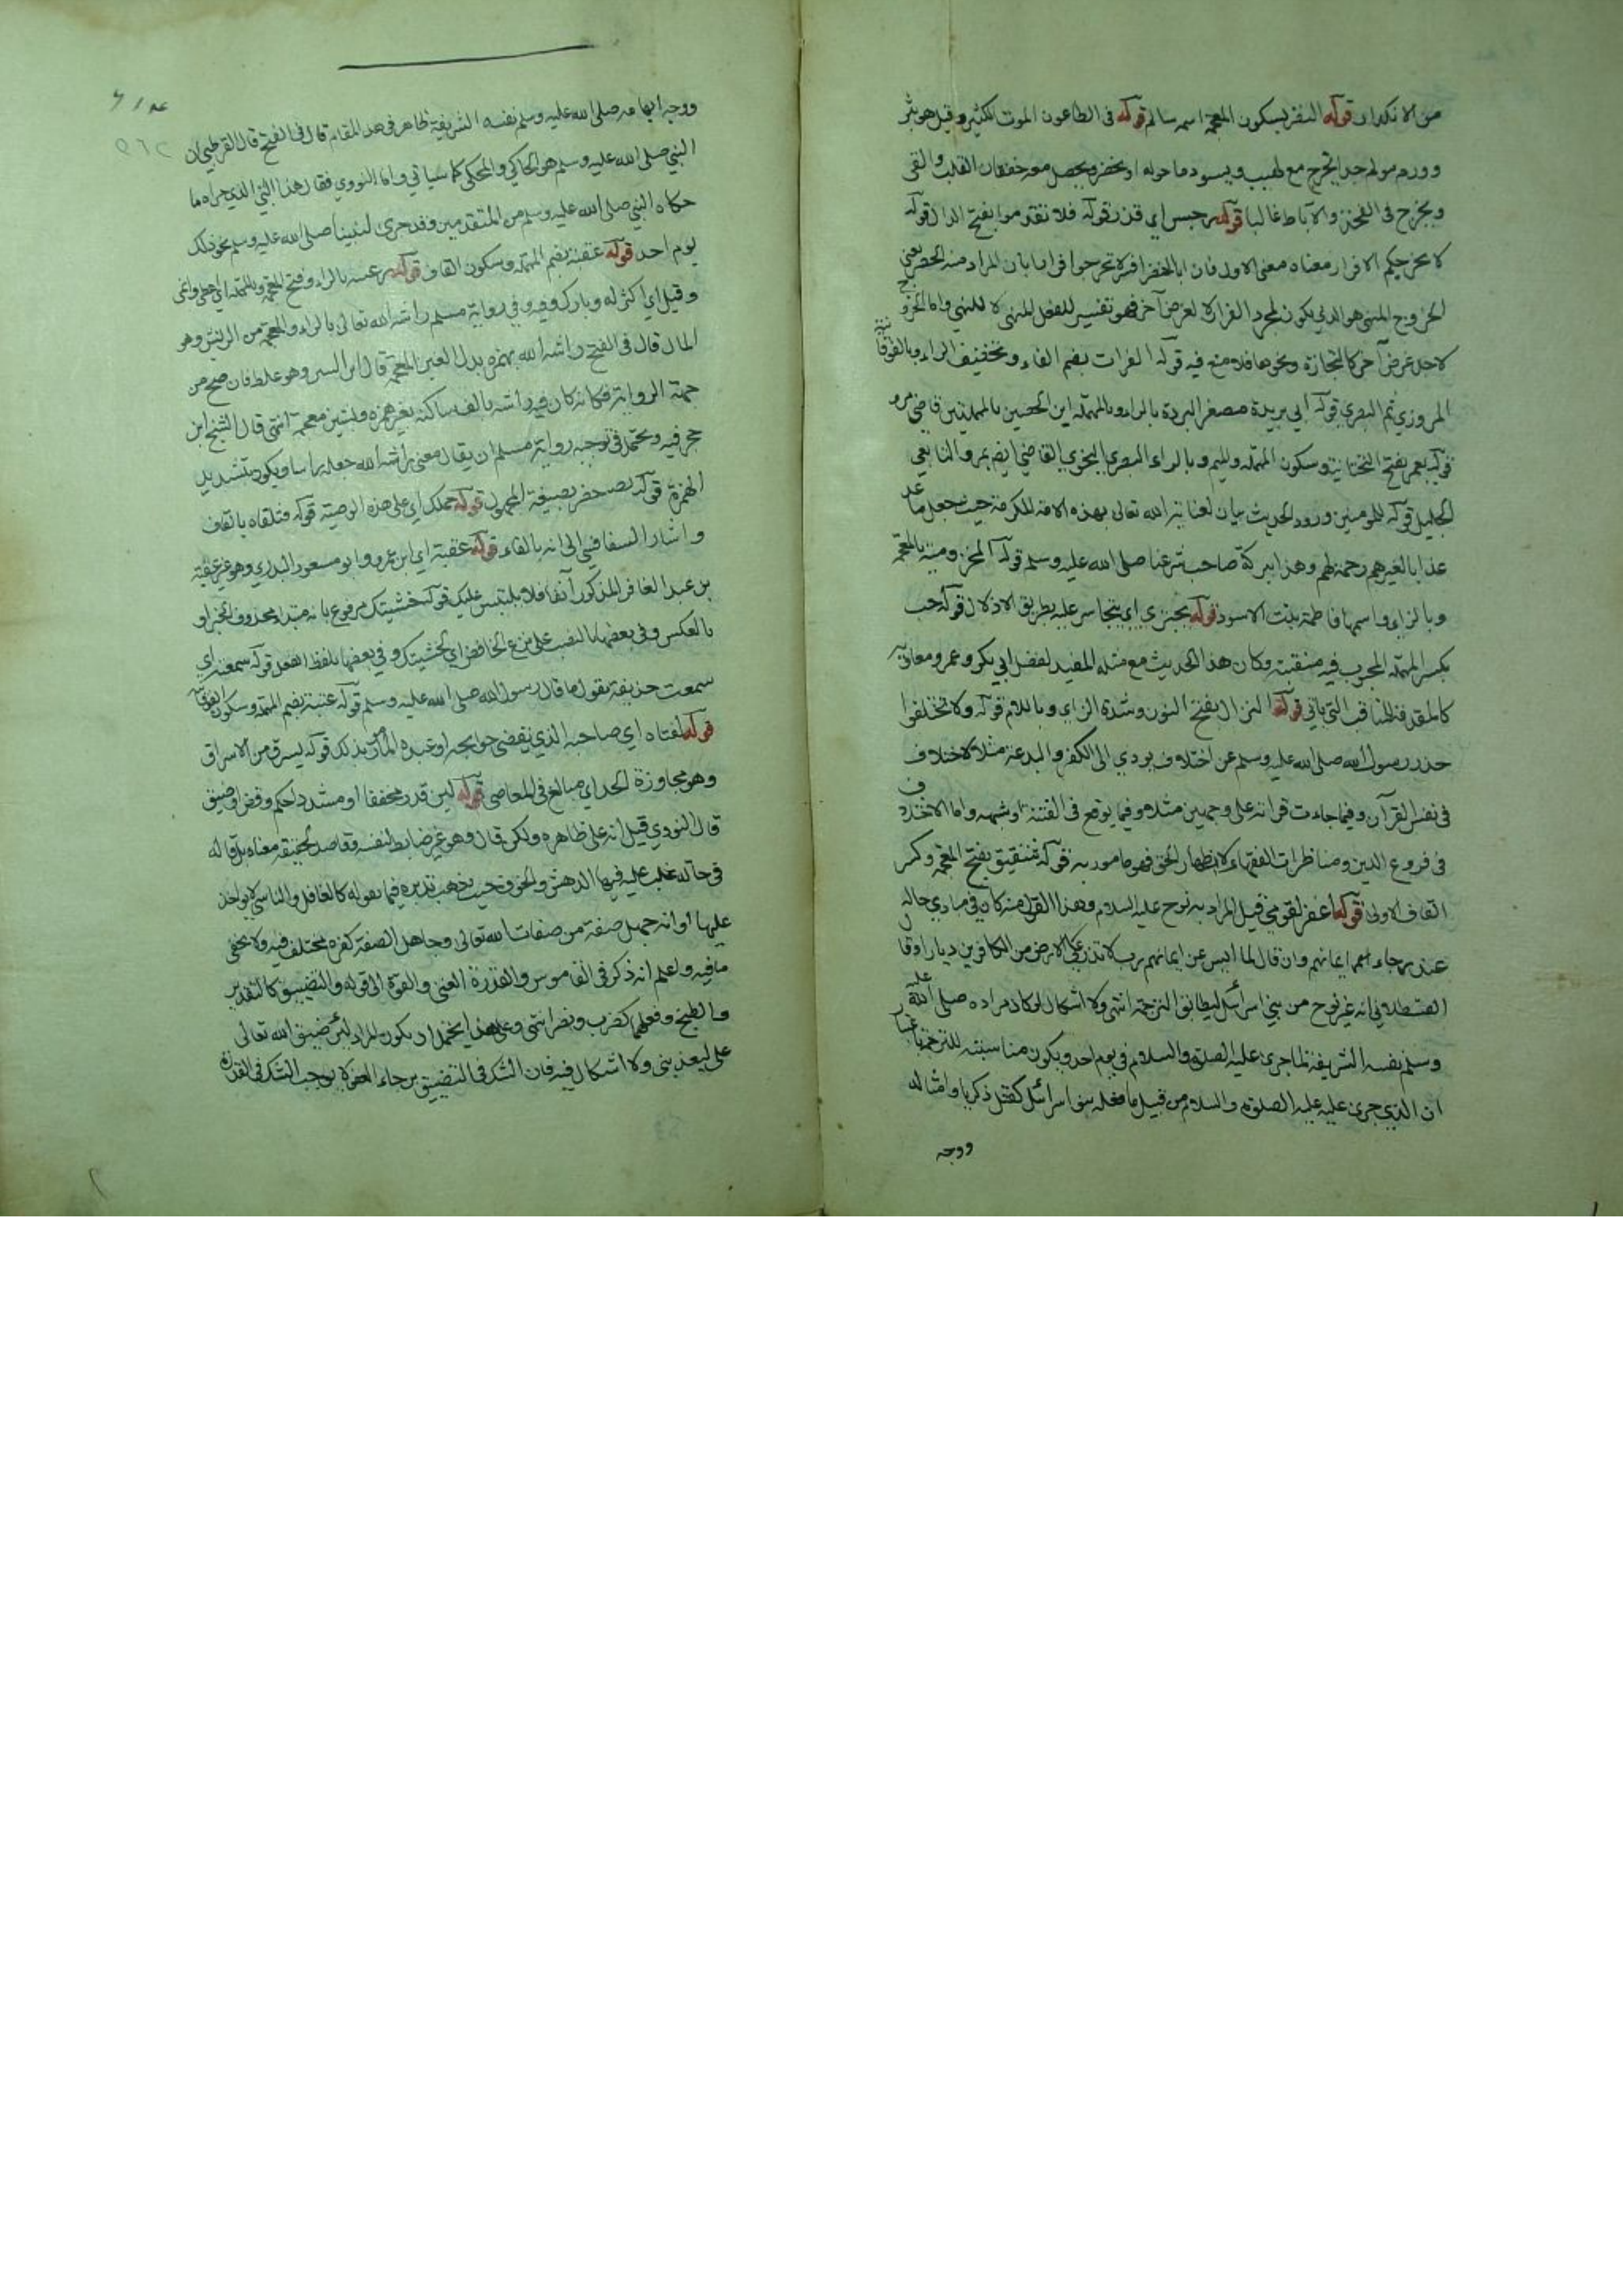 من الانكدار قوله النضر بسكون المعجمة اسمه سالم قوله في الطاعون الموت الكثير وقيل هو بثر
وورم مولم جدا يخرج مع لهيب ويسود ما حوله او يخضر ويحصل معه خفقان القلب والقي
ويخرج في الفخذ والاباط غالبا قوله رجس اي قذر قوله فلا تقدموا بفتح الدال قوله
لا يخرجكم الا فرار معناه معنى الاول فان ابا النضر فسر لا تخرجوا فرارا بان المراد منه الحصر يعني
الخروج المنهي هو الذي يكون لمجرد الفرار لا لغرض آخر فهو تفسير للفعل المنهي لا للنهي واما الخروج
لاجل غرض آخر كالتجارة ونحوها فلا منع فيه قوله الفرات بضم الفاء وتخفيف الراء وبالفوقانية
المروزي ثم البصري قوله ابي بريدة مصغر البردة بالراء والمهملة ابن الحصين بالمهملتين قاضي مرو
قوله يعمر بفتح التحتانية وسكون المهملة والميم وبالراء البصري النحوي القاضي ايضا بمرو التابعي
الجليل قوله للمومنين ورود الحديث بيان لعناية الله تعالى بهذه الامة المكرمة حيث جعل ما عد
عذابا لغيرهم رحمة لهم وهذا ببركة صاحب شرعنا صلى الله عليه وسلم قوله المخزومية بالمعجمة
وبالزاي واسمها فاطمة بنت الاسود قوله يجتري اي يتجاسر عليه بطريق الادلال قوله حب
بكسر المهملة المحبوب فيه منقبته وكان هذا الحديث مع مثله المفيد لفضل ابي بكر وعمر ومعاوية
كالمقدمة للمناقب التي ياتي قوله النزال بفتح النون وشدة الزاي وباللام قوله ولا تختلفوا
حذر رسول الله صلى الله عليه وسلم عن اختلاف يودي الى الكفر والبدعة مثلا كاختلاف
في نفس القرآن وفيما جاءت قرانه على وجهين مثلا وفيما يوقع في الفتنة او شبهه واما الاختلاف
في فروع الدين ومناظرات الفقهاء لاظهار الحق فهو مامور به قوله شقيق بفتح المعجمة وكسر
القاف الاولى قوله اغفر لقومي قيل المراد به نوح عليه السلام وهذا القول منه كان في مبادي حاله
عند رجاءهم ايمانهم وان قال لما ايس عن ايمانهم رب لا تذر على الارض من الكافرين ديارا وقال
القسطلاني انه غير نوح من بني اسرائيل ليطابق الترجمة انتهى ولا اشكال لو كان مراده صلى الله عليه
وسلم نفسه الشريفة لما جرى عليه الصلوة والسلام في يوم احد ويكون مناسبته للترجمة باعتبار
ان الذي جرى عليه عليه الصلوة والسلام من قبيل ما فعله بنو اسرائيل كقتل ذكريا وامثاله
ووجه
ووجه ابهامه صلى الله عليه وسلم نفسه الشريفة ظاهر في هذا المقام قال في الفتح قال القرطبي ان
النبي صلى الله عليه وسلم هو الحاكي والمحكي كما سياتي واما النووي فقال هذا النبي الذي جرا له ما
حكاه النبي صلى الله عليه وسلم من المتقدمين وقد جرى لنبينا صلى الله عليه وسلم نحو ذلك
يوم احد قوله عقبة بضم المهملة وسكون القاف قوله رغسه بالراء وفتح المعجمة والمهملة اي اعطي واغنى
وقيل اي اكثر له وبارك فيه وفي رواية مسلم راشه الله تعالى بالراء والمعجمة من الريش وهو
المال قال في الفتح راشه الله بهمزة بدل الغين المعجمة قال ابن السر وهو غلط فان صح من
جهة الرواية فكانه كان فيه راشه بالف ساكنه بغير همزة وبشين معجمة انتهى قال الشيخ ابن
حجر فيه ويحتمل في توجيه رواية مسلم ان يقال معنى راشه الله جعله راسا ويكون بتشديد
الهمزة قوله بصيغة المجهول قوله حملك اي على هذه الوصية قوله فتلقاه بالقاف
واشار السفاقسي الى انه بالفاء قوله عقبة اي ابن عمرو ابو مسعود البدري وهو غير عقبة
بن عبد الغافر المذكور آنفا فلا يلتبس عليك قوله خشيتك مرفوع بانه مبتدا محذوف الخبر او
بالعكس وفي بعضها بالنصب على نزع الخافض اي لخشيتك وفي بعضها بلفظ الفعل قوله سمعته اي
سمعت حذيفة يقول ما قال رسول الله صلى الله عليه وسلم قوله عتبة بضم المهملة وسكون الفوقانية
قوله لفتاه اي صاحبه الذي يقضي حوايجه او عبده المأذون بذلك قوله يسرف من الاسراف
وهو مجاوزة الحد اي مبالغ في المعاصي قوله لئن قدر مخففا او مشددا حكم وقضى او ضيق
قال النووي قيل انه على ظاهره ولكن قال وهو غير ضابط لنفسه وقاصد لحقيقة معناه بل قاله
في حالة غلب عليه فيها الدهش والخوف حيث يذهب تدبره فيما يقوله كالغافل والناسي لا يواخذ
عليها او انه جهل صفة من صفات الله تعالى وجاهل الصفة كفره مختلف فيه ولا يخفى
ما فيه واعلم انه ذكر في القاموس والقدرة الغنى والقوة الى قوله والتضييق كالتقدير
والطبخ وفعلهما كضرب ونصر انتهى وعلى هذا يحتمل ان يكون المراد لئن ضيق الله تعالى
على ليعذبني ولا اشكال فيه فان الشك في التضييق برجاء العفو لا يوجب الشك في القدرة